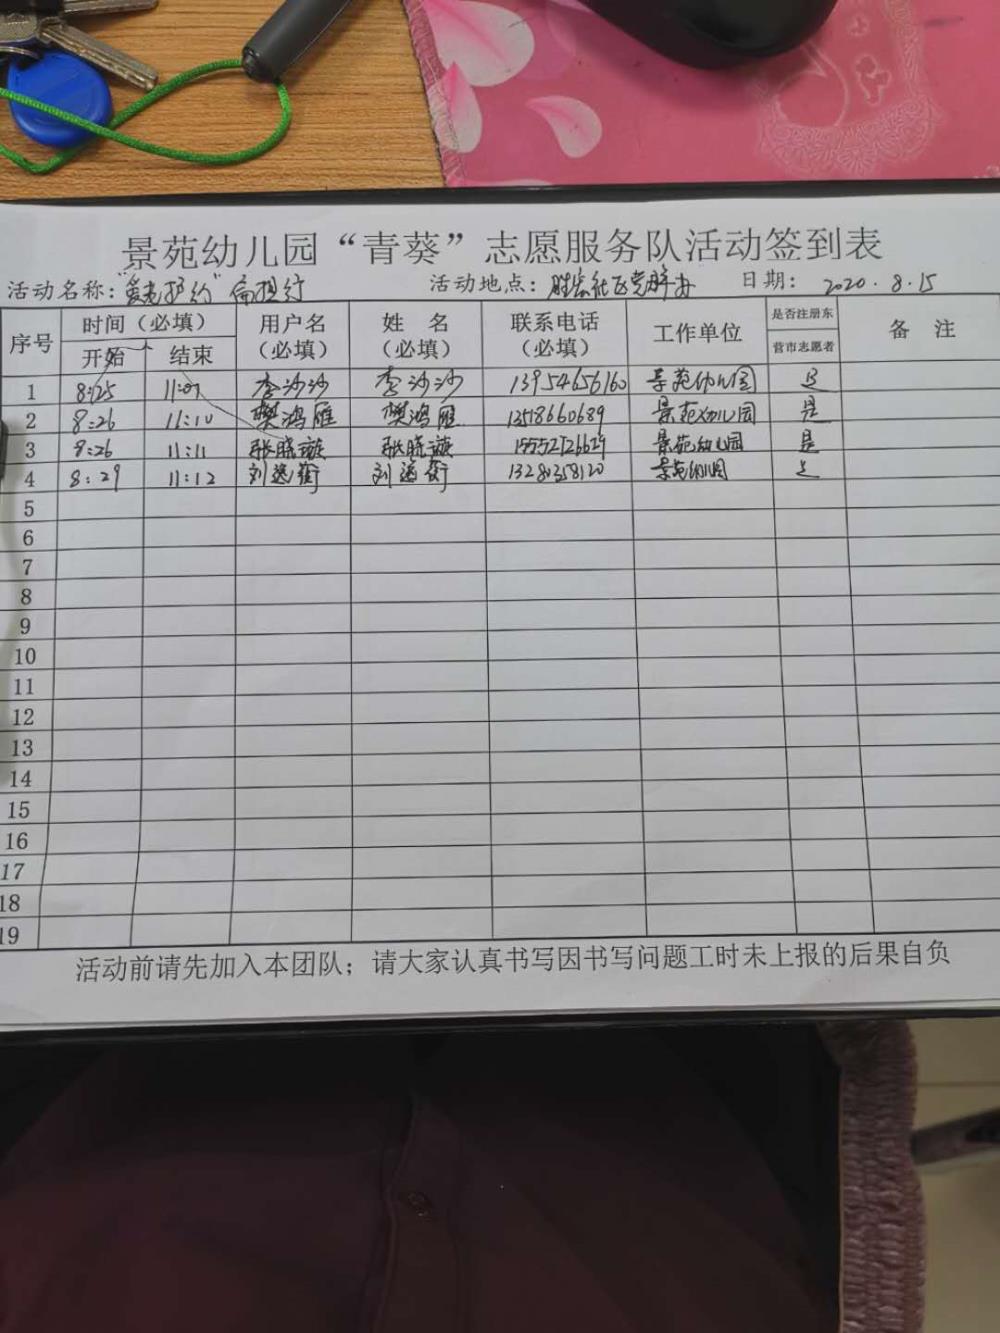 景苑幼儿园“青葵”志愿服务队活动签到表
活动名称： 活动地点： 胜宏社区党群办 日期： 2020.8.15
序号 时间（必填） 用户名（必填） 姓 名（必填） 联系电话（必填） 工作单位 是否注册东营市志愿者 备 注
开始 结束
1 8:25 11:07 李沙沙 李沙沙 13954656160 景苑幼儿园 是
2 8:26 11:10 樊鸿雁 樊鸿雁 13518660689 景苑幼儿园 是
3 8:26 11:11 张晓璇 张晓璇 景苑幼儿园 是
4 8:29 11:12 景苑幼儿园 是
5
6
7
8
9
10
11
12
13
14
15
16
17
18
19
活动前请先加入本团队；请大家认真书写因书写问题工时未上报的后果自负